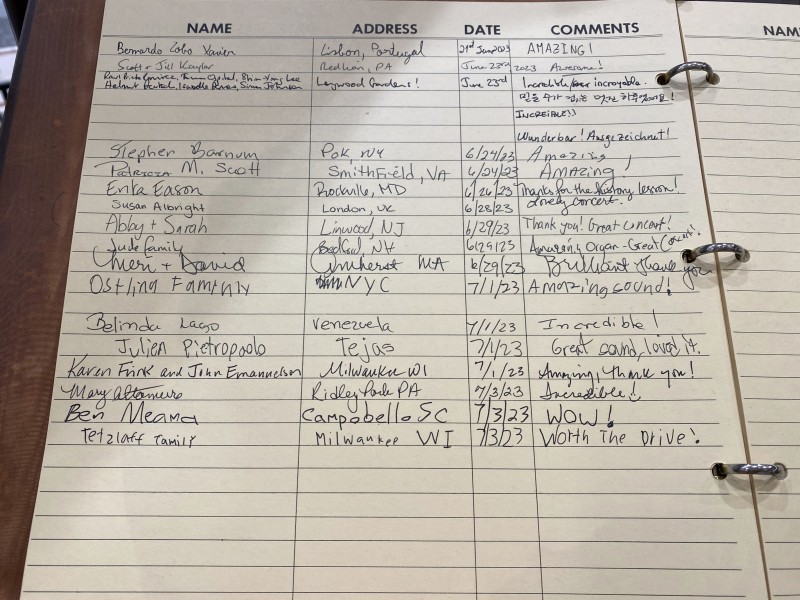 NAME ADDRESS DATE COMMENTS
Bernardo Lobo Xavier Lisbon, Portugal 21st June 2023 AMAZING!
Scott + Jill Kaylor Red Lion, PA June 23rd 2023 Awesome!
Lee Longwood Gardens! June 23rd Incredible incroyable.
Helmut Simon Johnson
INCREIBLE!!
Wunderbar! Ausgezeichnet!
Stephen Barnum POK, NY 6/24/23 Amazing
Patricia M. Scott Smithfield, VA 6/24/23 AMAZING!
Erika Eason Rockville, MD 6/26/23 Thanks for the history lesson!
Susan Albright London, UK 6/28/23 Lovely concert.
Abby + Sarah Linwood, NJ 6/29/23 Thank you! Great concert!
Jude family Bedford, NH 6/29/23 Amazing Organ - Great Concert!
Cheri + David Amherst MA 6/29/23 Brilliant thank you
NYC 7/1/23 Amazing sound!
Belinda Lago Venezuela 7/1/23 Incredible!
Julien Pietropaolo Tejas 7/1/23 Great sound, loved it.
Karen Frink and John Emanuelson Milwaukee WI 7/1/23 Amazing, thank you!
Mary Altamuro Ridley Park PA 7/3/23 Incredible!!
Ben Meama Campobello SC 7/3/23 WOW!
Tetzlaff Family Milwaukee WI 7/3/23 Worth The Drive!
NAM